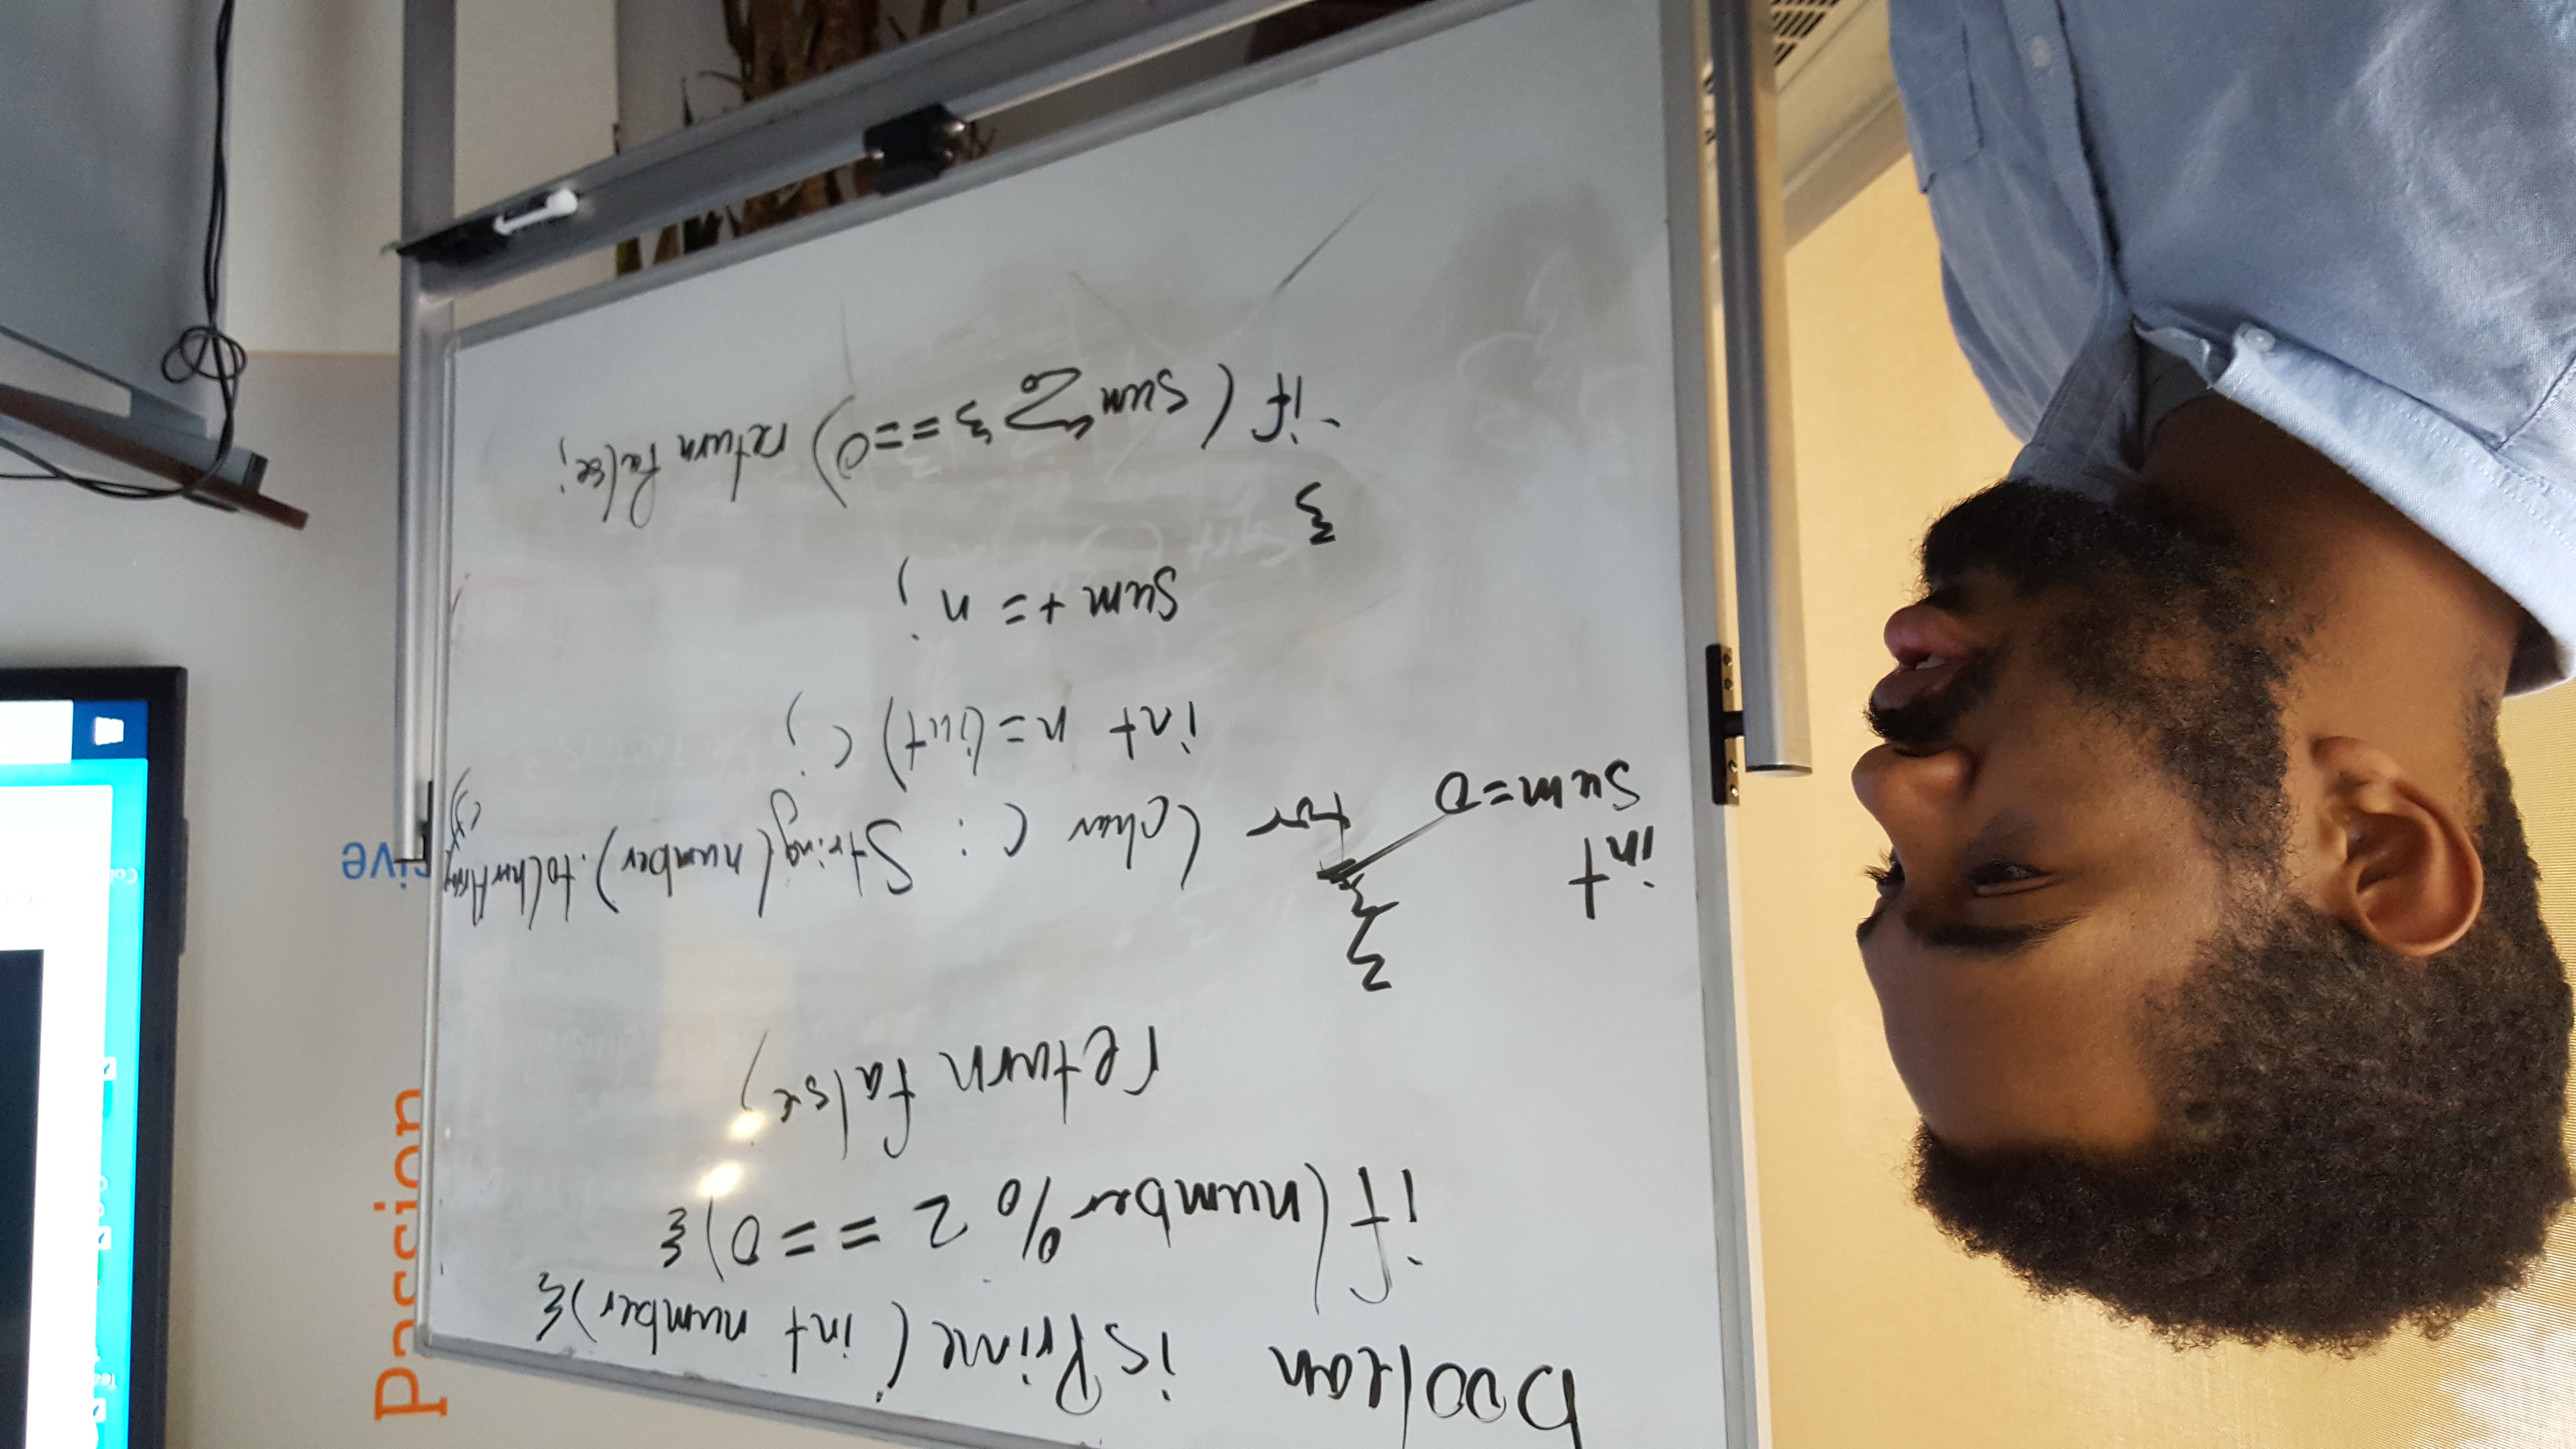 boolean isPrime(int number){
if(number % 2 == 0){
return false;
}
int
sum=0
for (char c : String(number).toCharArray
())
int n=(int) c;
sum += n;
}
if (sum % 3 ==0) return false;
Passion
sive